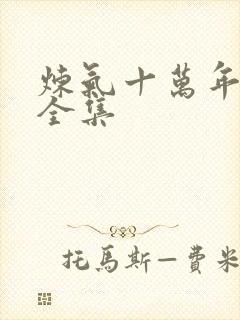 煉氣十萬年
全集
托馬斯—費米